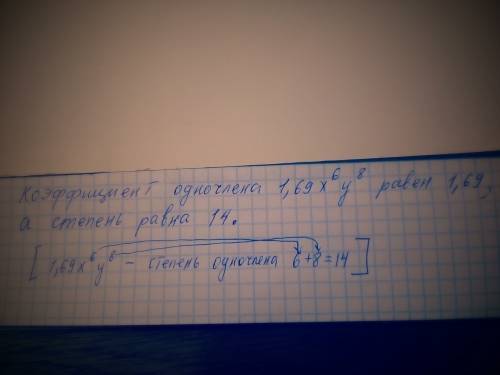 Коэффициент одночлена 1,69x⁶y⁸ равен 1,69,
а степень равна 14.
[1,69x⁶y⁸ – степень одночлена 6+8=14]